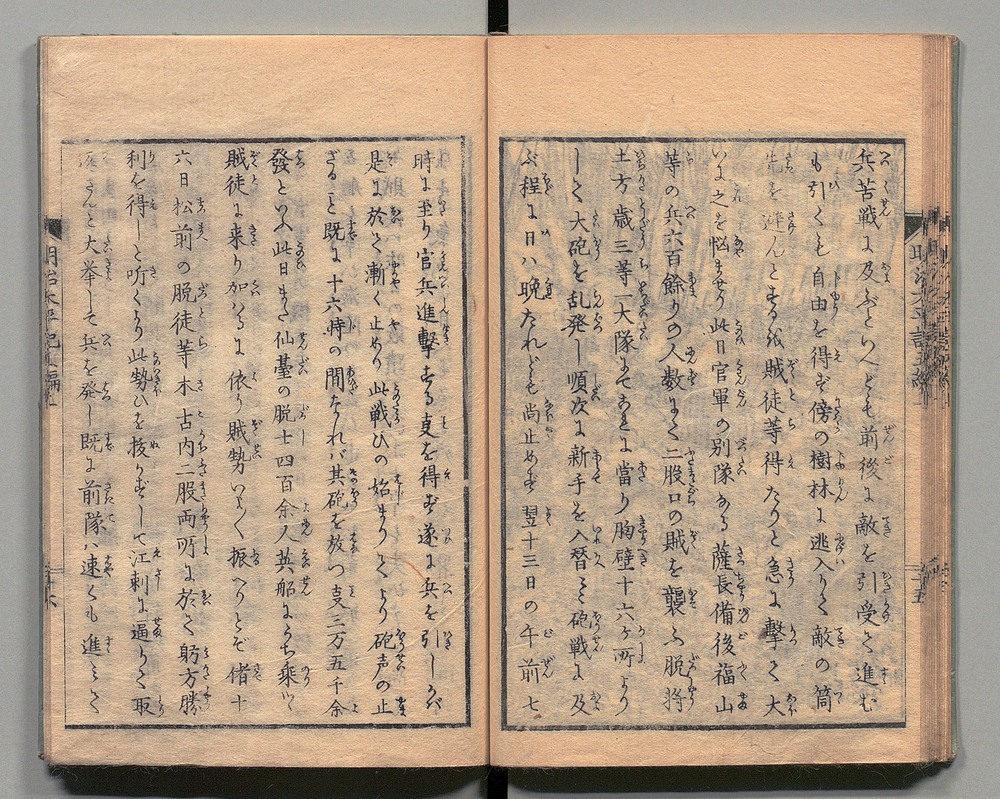 兵苦戦に及ぶといへども前後に敵を引受て進む
も引くも自由を得ず傍の樹林に逃入りて敵の筒
先を避んとするを賊徒等得たりと急に撃て大
いに之を悩ませり此日官軍の別隊なる薩長備後福山
等の兵六百餘りの人数にて二股口の賊を襲ふ脱将
土方歳三等一大隊にてこれに當り胸壁十六ケ所より
して大砲を乱発し順次に新手を入替て砲戦に及
ぶ程に日ハ晩たれども尚止めず翌十三日の午前七
時に至り官兵進撃する事を得ず遂に兵を引しかバ
是に於て漸く止めり此戦ひの始まりてより砲声の止
ざること既に十六時の間なれバ其砲を放つ事三万五千余
發といふ此日また仙臺の脱士四百余人英船にうち乗て
賊徒に来り加はるに依り賊勢いよ〱振へりとぞ偖十
六日松前の脱徒等木古内二股両所に於て躬方勝
利を得しと听くより此勢ひを抜かずして江刺に逼りて取
返さんと大挙して兵を発し既に前隊ハ速くも進みて
明治太平記五編